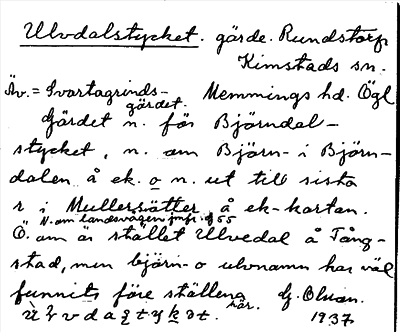 Ulvdalstycket. gärde. Rundstorp
Kimstads sn.
Äv. = Svartagrinds- Memmings hd. Ögl
gärdet.
Gärdet n. för Björndal-
stycket, n. om Björn- i Björn-
dalen å ek. o n. ut till sista
r i Mullersätter å ek-kartan.
N. om landsvägen jmfr. 55
Ö. om är stället Ulvedal å Tång-
stad, men björn- o ulvnamn har väl
funnits före ställena
här. G. Olson.
Ùlvdastykət. 1937